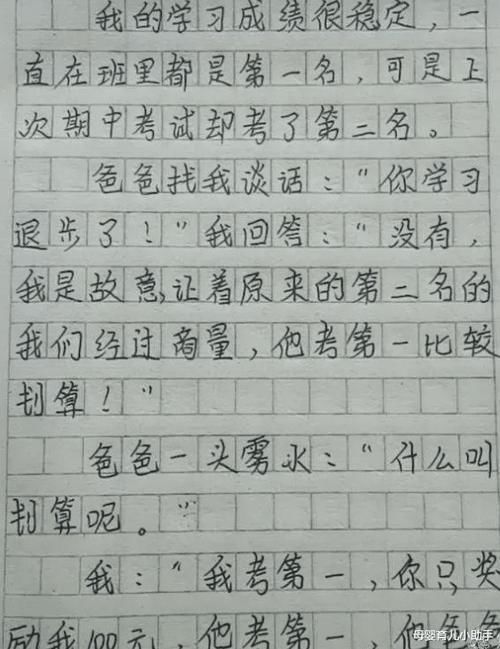 我的学习成绩很稳定，一
直在班里都是第一名，可是上
次期中考试却考了第二名。
爸爸找我谈话：“你学习
退步了！”我回答：“没有，
我是故意让着原来的第二名的
我们经过商量，他考第一比较
划算！”
爸爸一头雾水：“什么叫
划算呢。”
我：“我考第一，你只奖
励我100元，他考第一，他爸爸
母婴育儿小助手